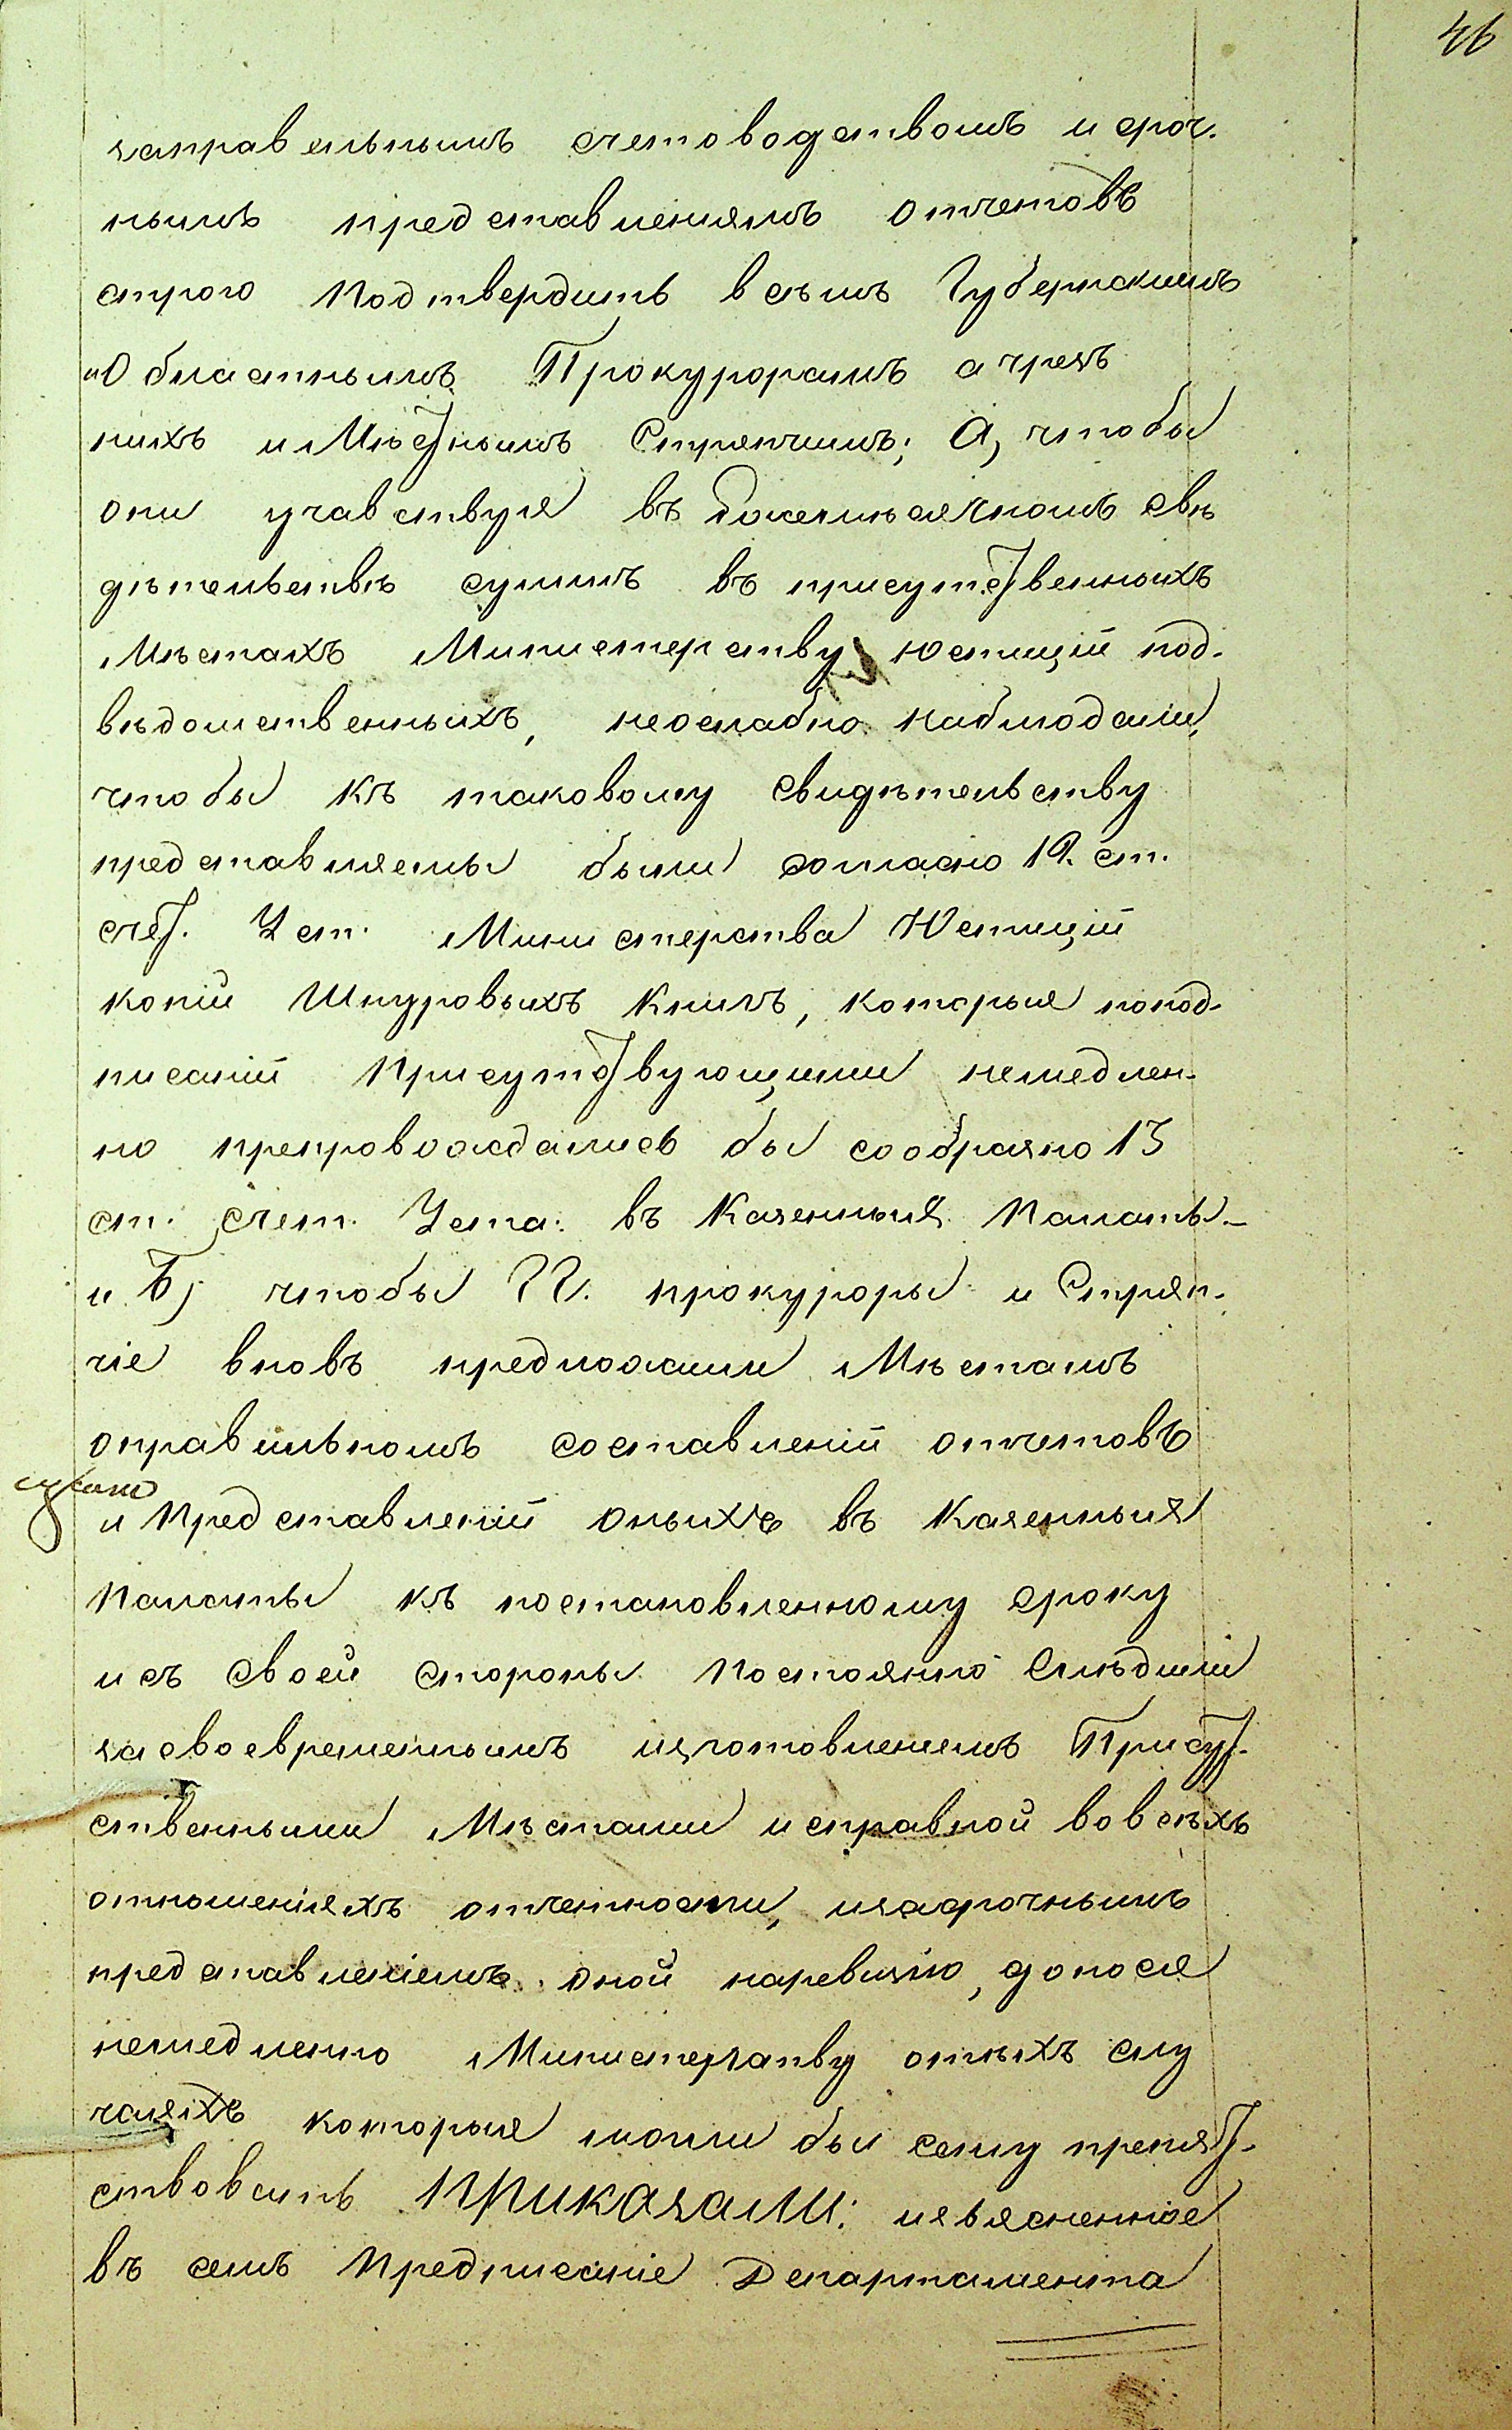 46
заправильнымъ счетоводствомъ и сроч.
нымъ представленіямъ отчетовъ
строго подтвердить всѣмъ Губернскимъ
и Областнымъ Прокурорамъ а чрезъ
нихъ и Мѣстнымъ Стряпчимъ; А, чтобы
они учавствуя въ ежемѣсячномъ сви
дѣтельствѣ суммъ въ присутственныхъ
Мѣстахъ Министерству Юстиціи под-
вѣдомственныхъ, неослабно наблюдали,
чтобы къ таковому свидѣтельству
представляемы были согласно 19. ст.
счет. Уст. Министерства Юстиціи
копіи Шнуровыхъ Книгъ, которыя попод-
писаніи Присутствующими немедлен-
но препровождались бы сообразно 13
ст. счет. Уста: въ Казенныя Палаты-
и Б; чтобы ГГ. прокуроры и Стряп-
чіе вновь предложили Мѣстамъ
оправильномъ составленіи отчетовъ
и представленіи оныхъ въ Казенныя
Палаты къ постановленному сроку
и съ своей стороны постоянно слѣдили
засвоевременнымъ изготовленіемъ Присут-
ственными Мѣстами исправной вовсѣхъ
отношеніяхъ отчетности, изасрочнымъ
представленіемъ оной наревизію, донося
немедленно Министерству отѣхъ слу
чаяхъ которыя могли бы сему препят-
ствовать Приказали: изъясненное
въ семъ Предписаніе Департамента